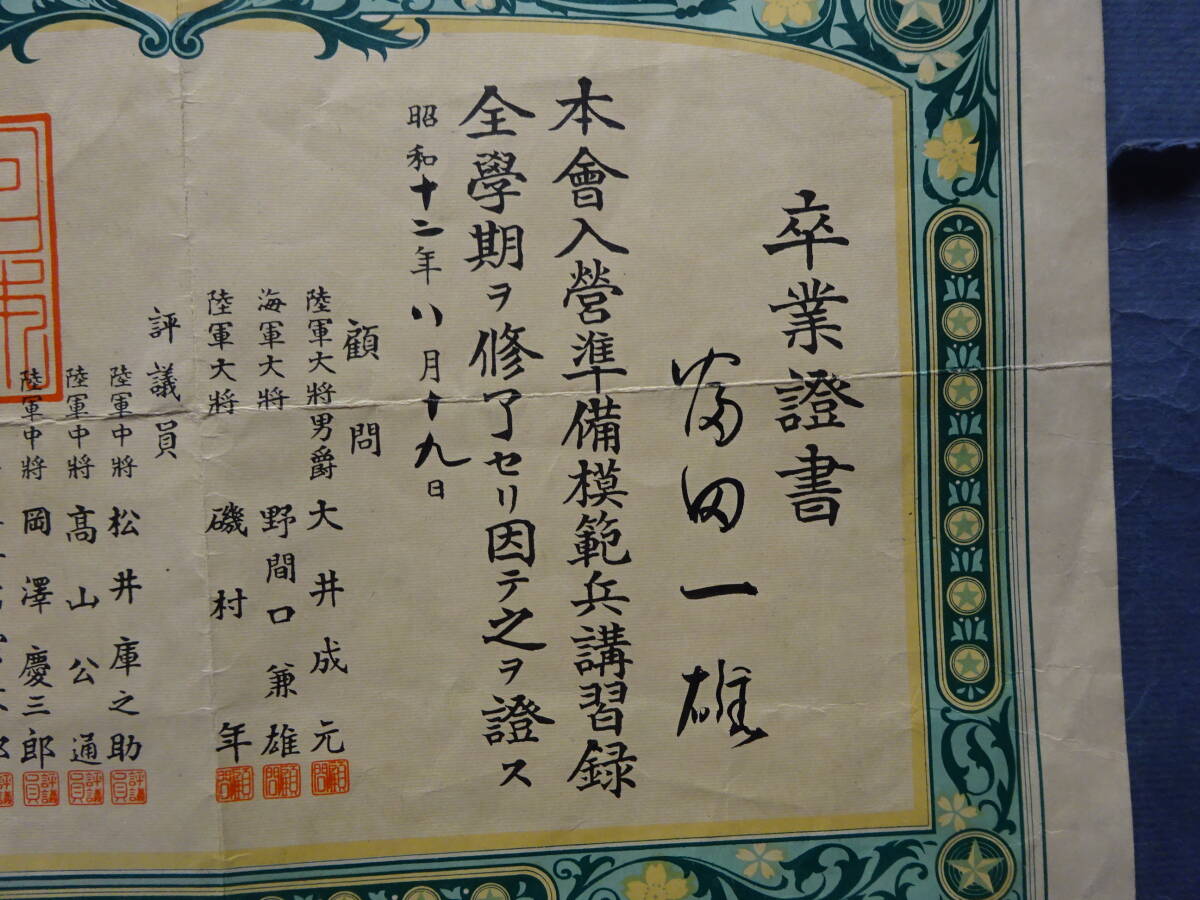 卒業證書
富田一雄
本會入營準備模範兵講習録
全學期ヲ修了セリ因テ之ヲ證ス
昭和十二年八月十九日
顧問
陸軍大将男爵 大井成元
顧問
海軍大將 野間口兼雄
顧問
陸軍大將 磯村年
顧問
評議員
陸軍中將 松井庫之助
評議員
陸軍中將 高山公通
評議員
陸軍中將 岡澤慶三郎
評議員